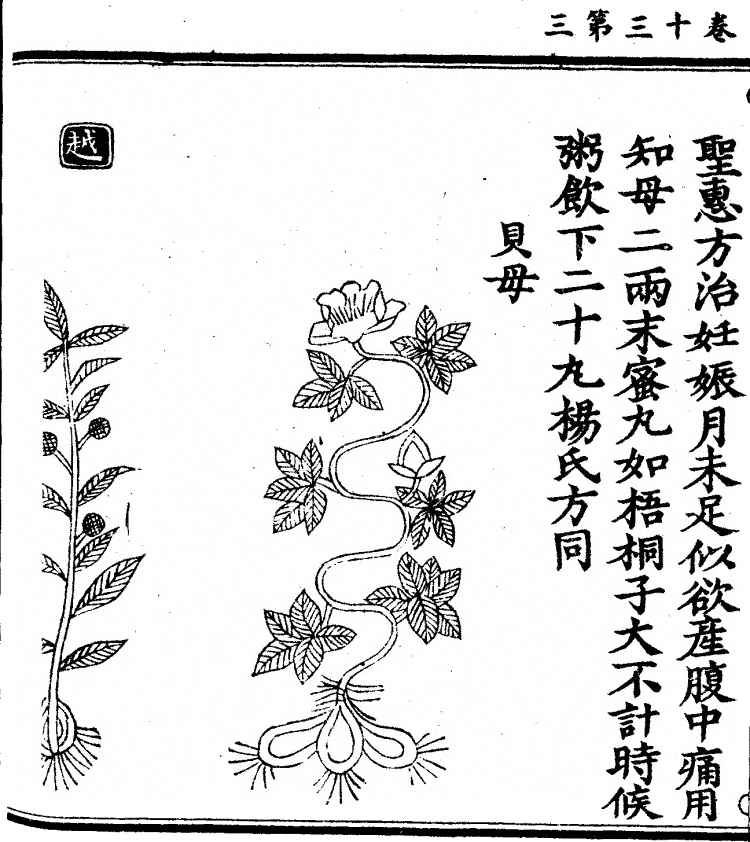 卷十三第三
聖惠方治妊娠月未足似欲産腹中痛用
知母二兩末蜜丸如梧桐子大不計時候
粥飲下二十丸楊氏方同
貝母
越